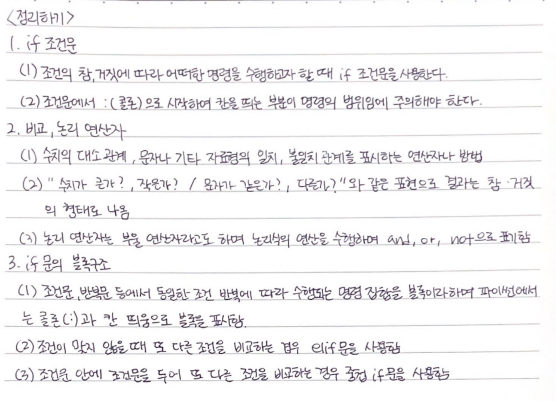 <정리하기>
1. if 조건문
(1) 조건의 참, 거짓에 따라 어떠한 명령을 수행하고자 할 때 if 조건문을 사용한다.
(2) 조건문에서 :(콜론)으로 시작하여 칸을 띄는 부분이 명령의 범위임에 주의해야 한다.
2. 비교, 논리 연산자
(1) 수치의 대소 관계, 문자나 기타 자료형의 일치, 불일치 관계를 표시하는 연산자나 방법
(2) "수치가 큰가?, 작은가? / 문자가 같은가?, 다른가?"와 같은 표현으로 결과는 참·거짓
의 형태로 나옴
(3) 논리 연산자는 부울 연산자라고도 하며 논리식의 연산을 수행하며 and, or, not으로 표기함
3. if문의 블록구조
(1) 조건문, 반복문 등에서 동일한 조건 반복에 따라 수행되는 명령 집합을 블록이라하며 파이썬에서
는 콜론(:)과 칸 띄움으로 블록을 표시함.
(2) 조건이 맞지 않을 때 또 다른 조건을 비교하는 경우 elif문을 사용함
(3) 조건문 안에 조건문을 두어 또 다른 조건을 비교하는 경우 중첩 if문을 사용함